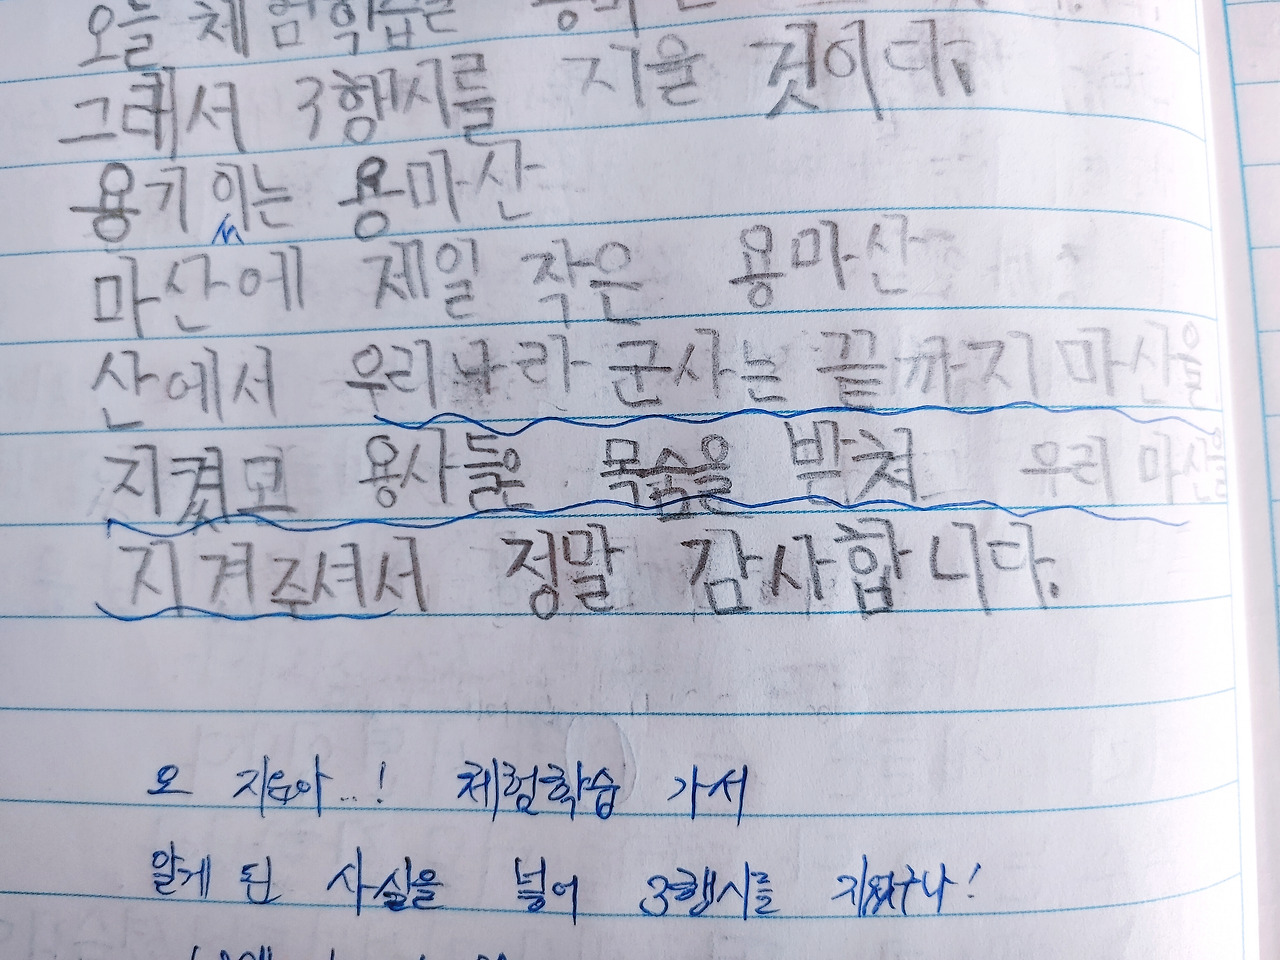 오늘 체험학습을
그래서 3행시를 지을 것이다.
용기 이는 용마산
마산에 제일 작은 용마산
산에서 우리나라 군사는 끝까지 마산을
지켰고 용사들은 목숨을 받쳐 우리 마산을
지켜주셔서 정말 감사합니다.
오 지윤아...! 체험학습 가서
알게 된 사실을 넣어 3행시를 지었구나!